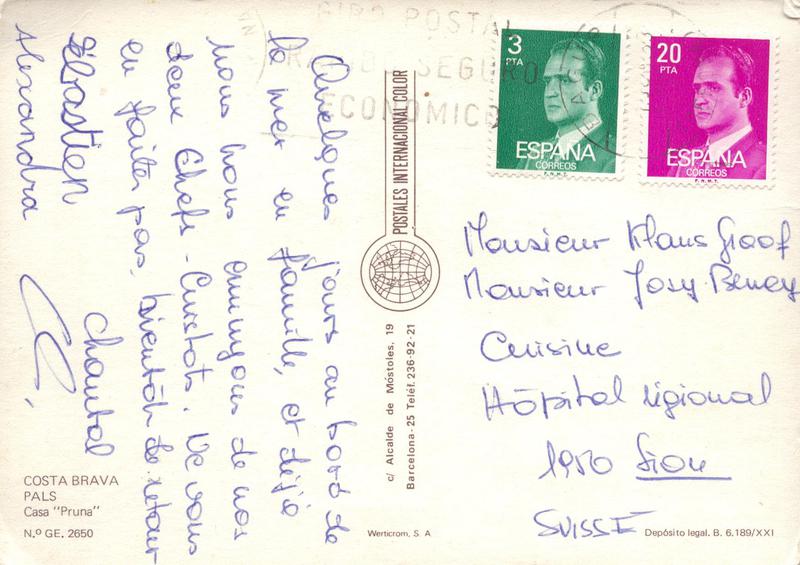 GIRO POSTAL
RAPIDO SEGURO
ECONOMICO
3
PTA
ESPAÑA
CORREOS
F.N.M.T.
20
PTA
ESPAÑA
CORREOS
F.N.M.T.
Quelques jours au bord de
la mer en famille, et déjà
nous nous ennuyons de nos
deux Chefs - Cuistots. Ne vous
en faites pas, bientôt de retour
Sébastien Chantal
Alexandra
POSTALES INTERNACIONAL COLOR
c/ Alcalde de Móstoles, 19
Barcelona-25 Teléf. 236-92-21
Monsieur Klaus Graaf
Monsieur Josy Beney
Cuisine
Hôpital régional
1950 Sion
SUISSE
COSTA BRAVA
PALS
Casa "Pruna"
N.º GE. 2650
Werticrom, S. A
Depósito legal. B. 6.189/XXI